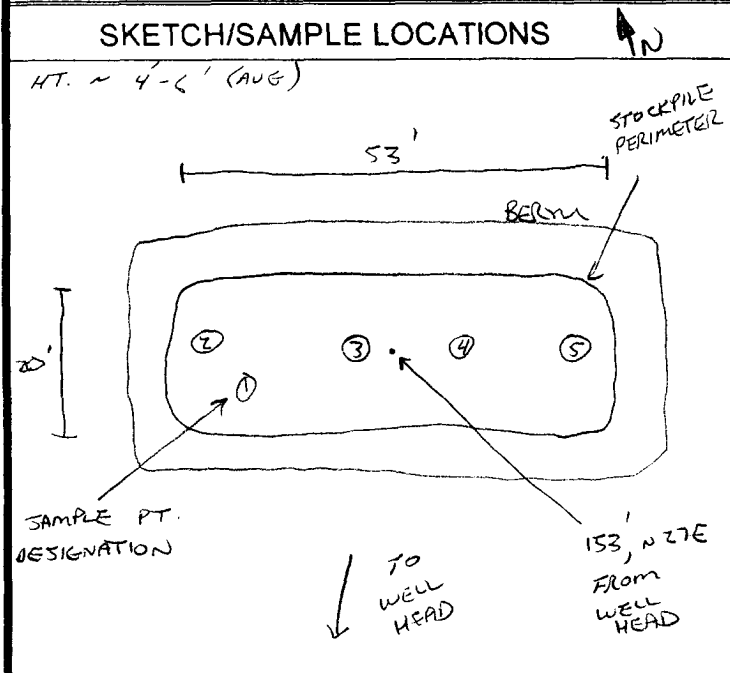 SKETCH/SAMPLE LOCATIONS
N
HT. ~ 4'-6' (AVE)
53'
STOCKPILE
PERIMETER
BERM
20'
②
③
④
⑤
①
SAMPLE PT.
DESIGNATION
TO
WELL
HEAD
153', N27E
FROM
WELL
HEAD